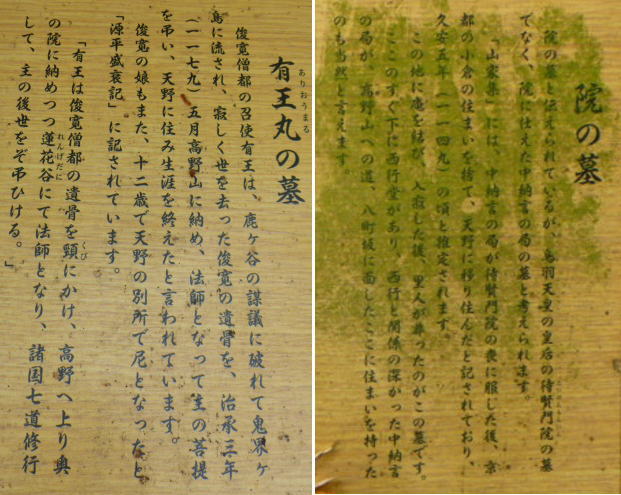 有王丸の墓
ありおうまる
俊寛僧都の召使有王は、鹿ヶ谷の謀議に破れて鬼界ヶ
島に流され、寂しく世を去った俊寛の遺骨を、治承三年
(一一七九)五月高野山に納め、法師となって主の菩提
を弔い、天野に住み生涯を終えたと言われています。
俊寛の娘もまた、十二歳で天野の別所で尼となったと
「源平盛衰記」に記されています。
「有王は俊寛僧都の遺骨を頸にかけ、高野へ上り奥
くび
の院に納めつつ蓮花谷にて法師となり、諸国七道修行
れんげだに
して、主の後世をぞ弔ひける。」
院の墓
院の墓と伝えられているが、鳥羽天皇の皇后の待賢門院の墓
でなく、院に仕えた中納言の局の墓と考えられます。
「山家集」には、中納言の局が待賢門院の喪に服した後、京
都の小倉の住まいを捨て、天野に移り住んだと記されており、
久安五年(一一四九)の頃と推定されます。
この地に庵を結び、入寂した後、里人が葬ったのがこの墓です。
ここのすぐ下に西行堂があり、西行と関係の深かった中納言
の局が、高野山への道、八町坂に面したここに住まいを持った
のも当然と言えます。